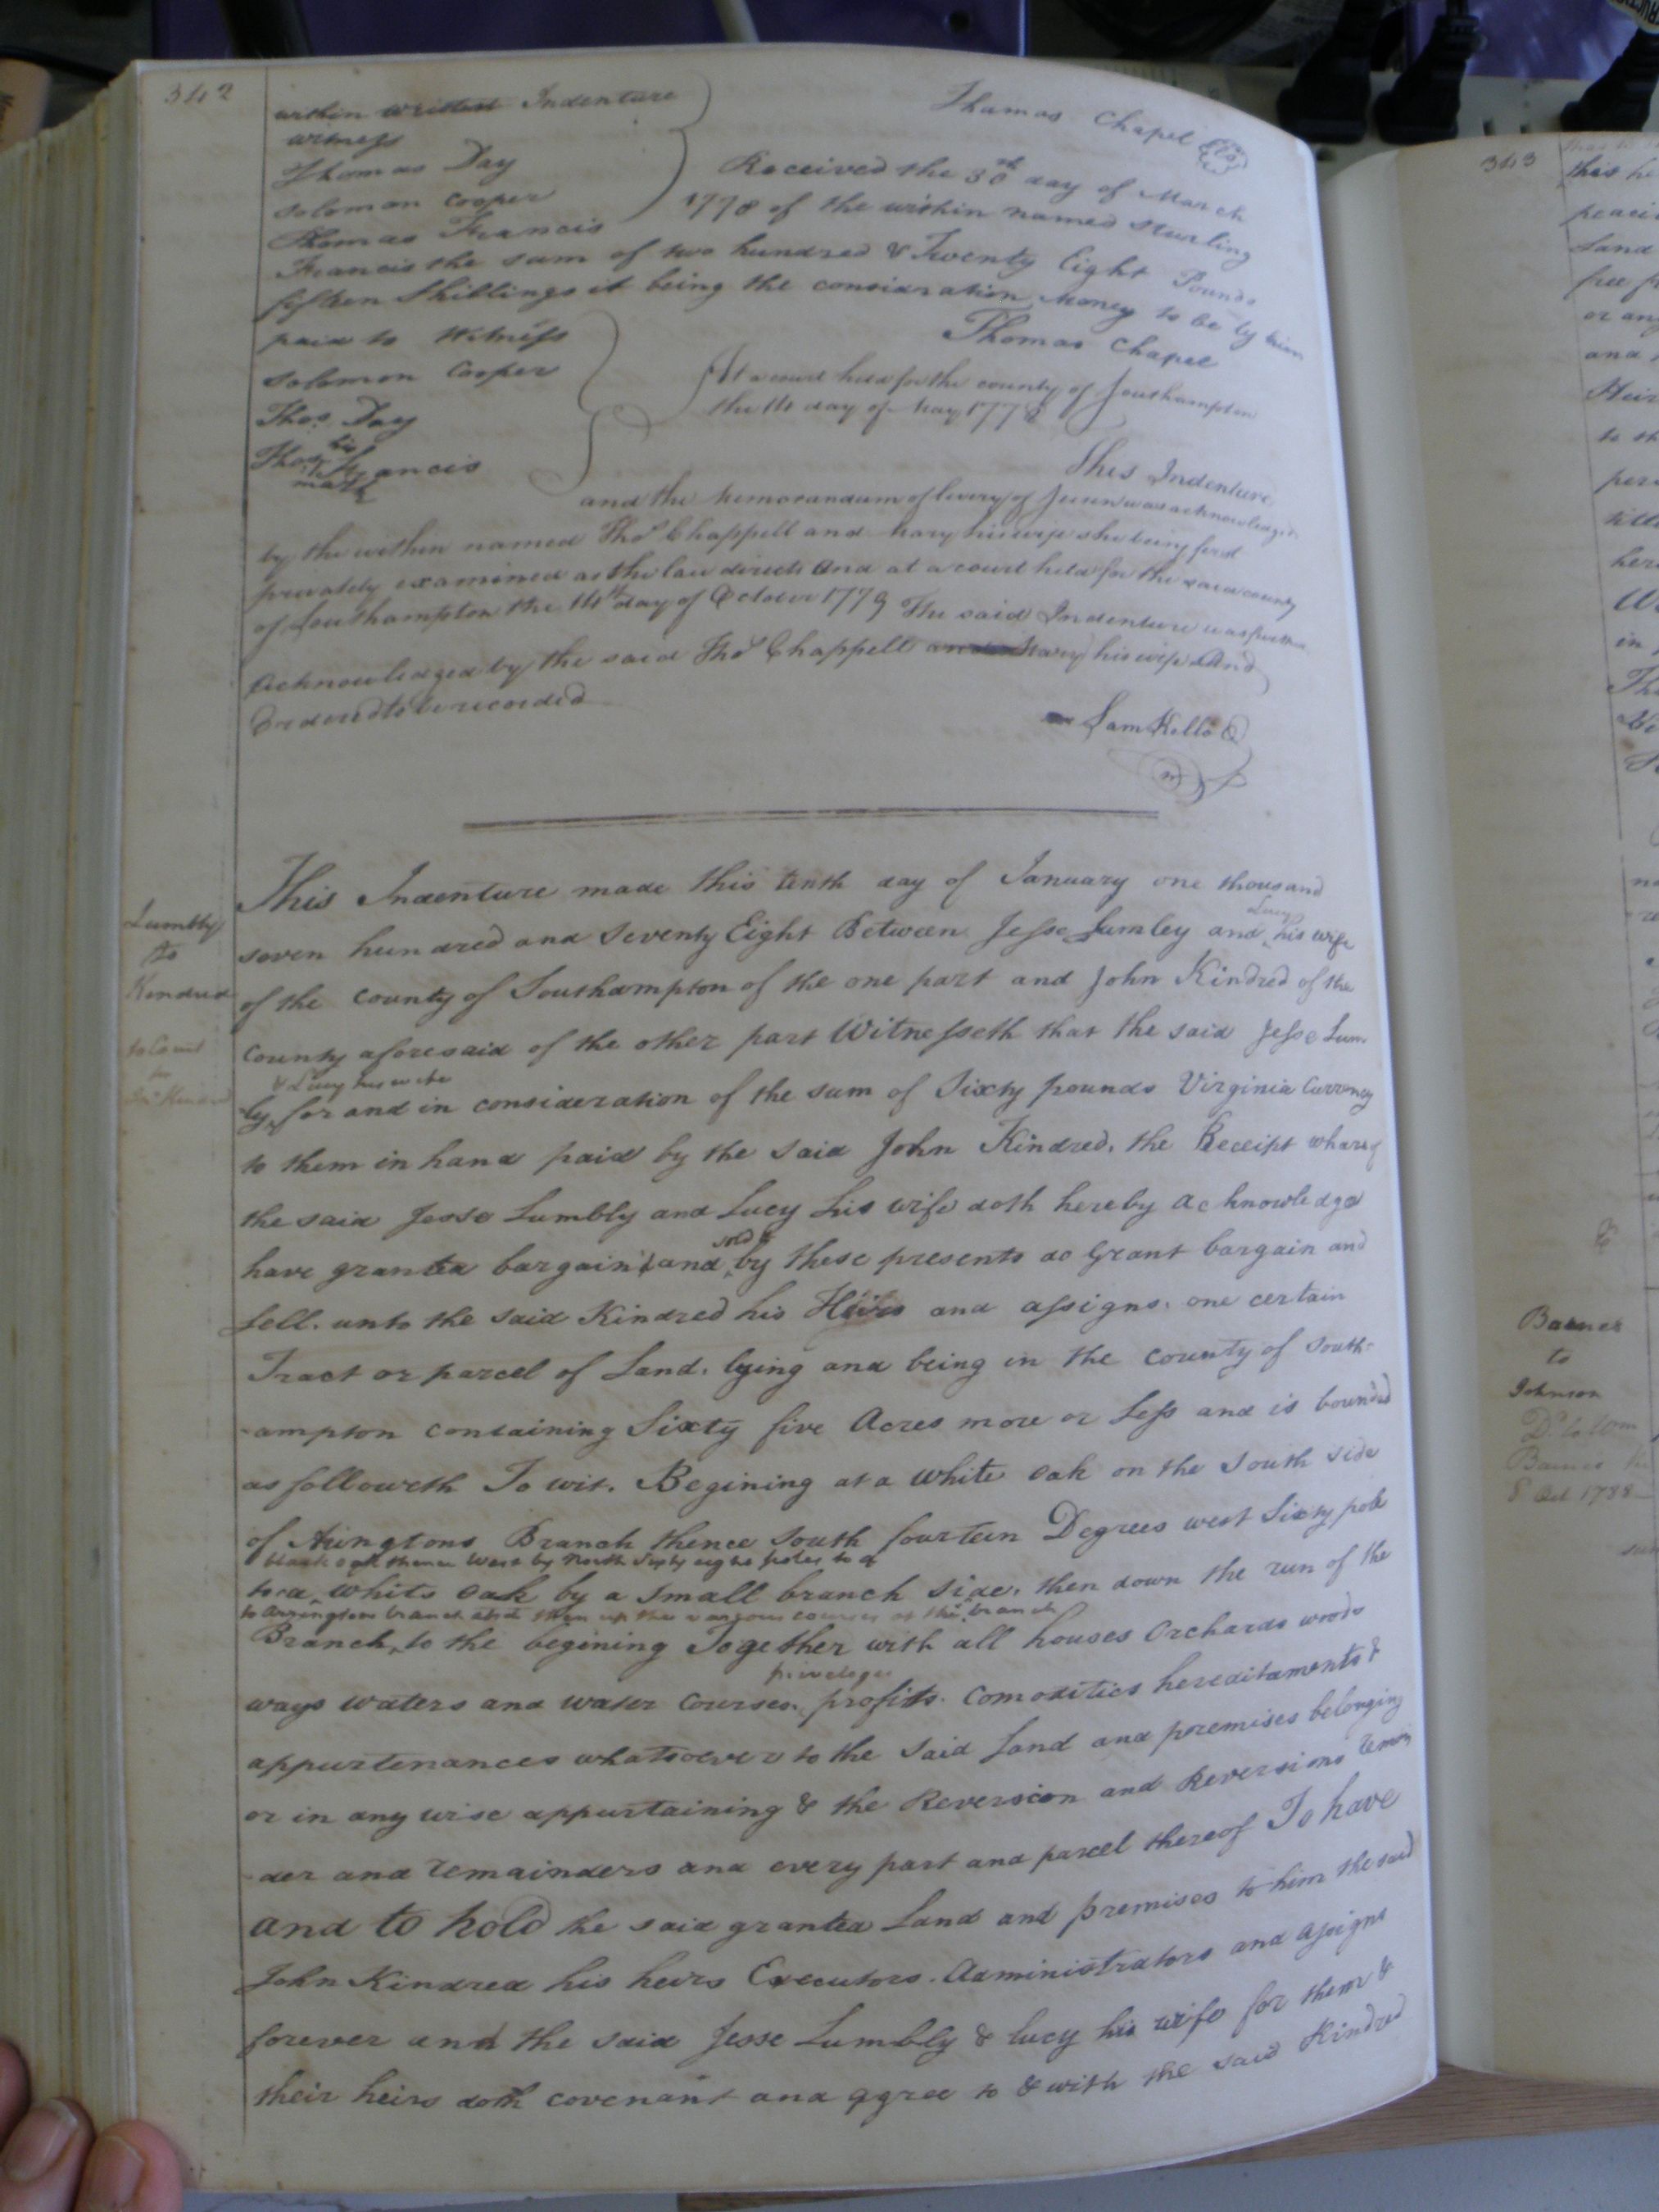 342
within written Indenture
Thomas Chapel
witness
Thomas Day
Solomon Cooper
Thomas Francis
Received the 30th day of March
1778 of the within named Sturling
Francis the sum of two hundred & Twenty Eight Pounds
fifteen Shillings it being the consideration Money to be by him
paid to Witness
Thomas Chapel
Solomon Cooper
Thos. Day
Thos. his Francis
mark
At a court held for the county of Southampton
the 14 day of May 1778
This Indenture
and the memorandum of livery of Seisen was acknowledged
by the within named Thos. Chappell and Mary his wife she being first
privately examined as the law directs And at a court held for the said county
of Southampton the 14th day of October 1779 The said Indenture was further
Acknowledged by the said Thos. Chappell and Mary his wife And
Ordered to be recorded
Sam Kello
Lumbly
to
Kindred
This Indenture made this tenth day of January one thousand
seven hundred and Seventy Eight Between Jesse Lumley and Lucy his wife
of the County of Southampton of the one part and John Kindred of the
County aforesaid of the other part Witnesseth that the said Jesse Lum-
ly, & Lucy his wife for and in consideration of the sum of Sixty pounds Virginia Currency
to them in hand paid by the said John Kindred, the Receipt whareof
the said Jesse Lumbly and Lucy his wife doth hereby acknowledge
have granted bargain'd and sold & by these presents do Grant bargain and
Sell. unto the said Kindred his Heirs and assigns. one certain
Tract or parcel of Land. lying and being in the county of South-
-ampton containing Sixty five Acres more or Less and is bounded
as followeth To wit. Begining at a white oak on the South side
of Aringtons Branch thence South fourteen Degrees west Sixty pole
black oak thence West by North Sixty eight poles to a
to a white oak by a Small branch side. then down the run of the
to Arringtons branch then up the various courses of the sd. branch
Branch, to the begining Together with all houses Orchards woods
priveleges
ways waters and water courses. profits. Comodities hereditaments &
appurtenances whatsoever to the said Land and premises belonging
or in any wise appurtaining & the Reversion and Reversions Remain
-der and remainders and every part and parcel thereof To have
and to hold the said granted Land and premises to him the said
John Kindred his heirs Executors. Administrators and Assigns
forever and the said Jesse Lumbly & Lucy his wife for them &
their heirs doth covenant and agree to & with the said Kindred
343
this
Land
or any
and
Heir
to th
in
Barnes
to
Johnson
Do. to Wm
Barnes
8 Oct. 1788